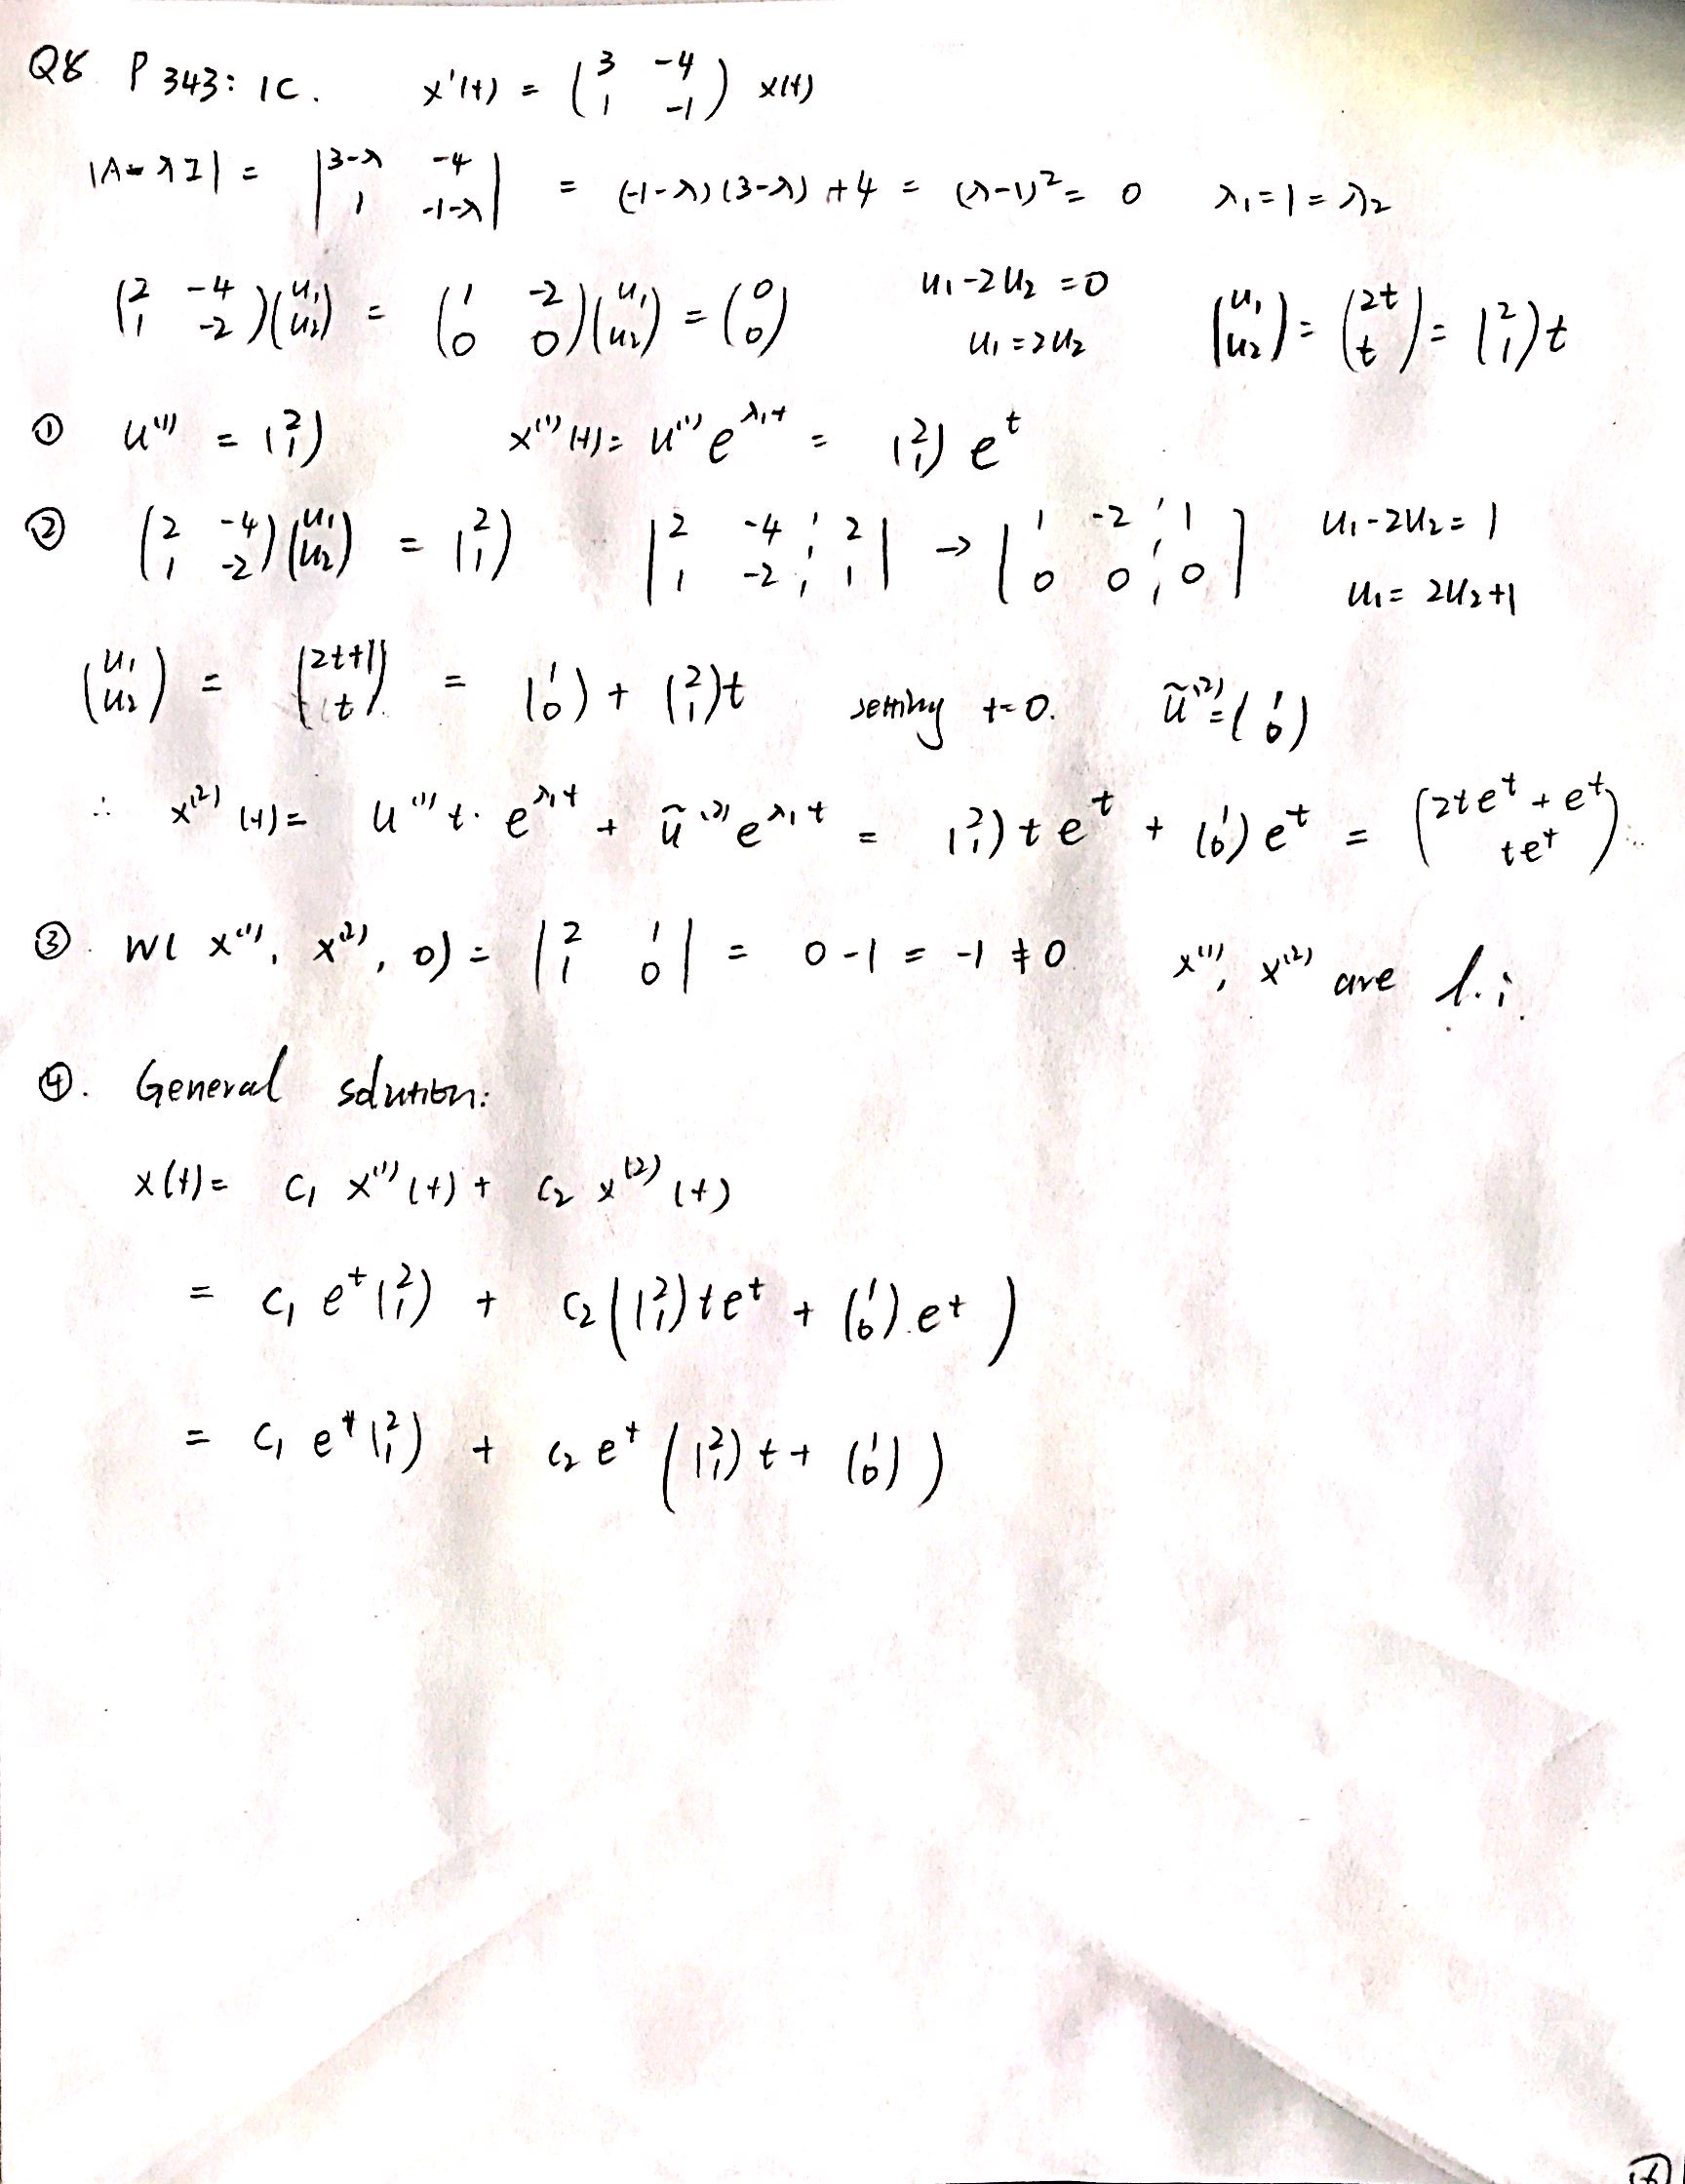 Q8 P 343: 1C. x'(t) = (3 -4; 1 -1) x(t)
|A-λI| = |3-λ -4; 1 -1-λ| = (-1-λ)(3-λ)+4 = (λ-1)² = 0 λ₁=1=λ₂
(2 -4; 1 -2)(u₁; u₂) = (1 -2; 0 0)(u₁; u₂) = (0; 0) u₁-2u₂=0 u₁=2u₂ (u₁; u₂) = (2t; t) = (2; 1)t
① u⁽¹⁾ = (2; 1) x⁽¹⁾(t) = u⁽¹⁾e^{λ₁t} = (2; 1) e^t
② (2 -4; 1 -2)(u₁; u₂) = (2; 1) |2 -4 ¦ 2; 1 -2 ¦ 1| → [1 -2 ¦ 1; 0 0 ¦ 0] u₁-2u₂=1 u₁=2u₂+1
(u₁; u₂) = (2t+1; t) = (1; 0) + (2; 1)t setting t=0. ũ⁽²⁾=(1; 0)
∴ x⁽²⁾(t) = u⁽¹⁾t·e^{λ₁t} + ũ⁽²⁾e^{λ₁t} = (2; 1)te^t + (1; 0)e^t = (2te^t+e^t; te^t)
③. W(x⁽¹⁾, x⁽²⁾, 0) = |2 1; 1 0| = 0-1 = -1 ≠ 0 x⁽¹⁾, x⁽²⁾ are l.i.
④. General solution:
x(t) = c₁ x⁽¹⁾(t) + c₂ x⁽²⁾(t)
= c₁ e^t(2; 1) + c₂((2; 1)te^t + (1; 0).e^t)
= c₁ e^t(2; 1) + c₂ e^t((2; 1)t + (1; 0))